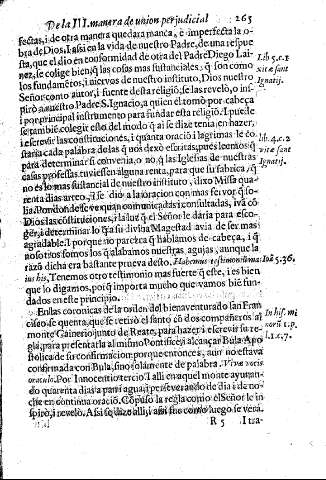 De la III. manera de union perjudicial 265
fectas, i de otra manera quedara manca, e imperfecta la o-
bra de Dios, I assi en la vida de nuestro Padre, de una respue
sta, que el dio en conformidad de otra del Padre Diego Lai-
nez, se colige bien, q̃ las cosas mas sustanciales; q̃ son como
los fundamẽtos, i niervos de nuestro instituto, Dios nuestro
Señor como autor, i fuente desta religiõ, se las revelò, o ins-
pirò a nuestro Padre S. Ignacio, a quien el tomò por cabeça
i por principal instrumento para fundar esta religiõ. I puede
se tambiẽ colegir esto del modo q̃ ai se dize tenia, en hazer,
i escrevir las constituciones, i quanta oraciõ i lagrimas le co
staria cada palabra de las q̃ nos dexò escritas, pues leemos q̃
para determinar si convenia, o no, q̃ las Iglesias de nuestras
casas professas tuviessen alguna renta, para que su fabrica, q̃
no es lo mas sustancial de nuestro instituto, dixo Missa qua-
renta dias arreo, i se diò a la oracion con mas fervor q̃ so-
lia. Por donde se ve quan comunicadas i consultadas, ivã cõ
Dios las cõstituciones, i la luz q̃ el Señor le daria para esco-
ger, i determinar lo q̃ a su divina Magestad avia de ser mas
agradable. I porque no parezca q̃ hablamos de cabeça, i q̃
nosotros somos los q̃ alabamos nuestras agujas, aunque la
razõ dicha era bastante prueva desto. Habemus testimonium ma
ius his, Tenemos otro testimonio mas fuerte q̃ este, i es bien
que lo digamos, porq̃ importa mucho que vamos biẽ fun-
dados en este principio.
En las coronicas de la orden del bienaventurado san Fran
cisco se quenta, que se retirò el santo cõ dos compañeros al
monte Gainerio junto de Reate, para hazer i escrevir su re-
gla, para presentarla al mismo Pontifice, i alcançar Bula Apo
stolica de su confirmacion: porque entonces, aun no estava
confirmada con Bula, sino solamente de palabra. Vivæ vocis
oraculo. Por Innocentio tercio. I alli en aquel monte ayunan-
do quarenta dias a pan i agua, i perseverando de dia i de no-
che en continua oraciõ, Cõpuso la regla como el Señor le in
spirò, i revelò. Assi se dize alli, i assi fue como luego se verà.
R 5 I tra-
Lib 5.c.1
vitæ sanct
Ignatij.
Lib. 4.c.2
vitæ sanct
Ignatij.
Ioã 5.36.
In hist. mi
norũ 1.p.
l.1.c.7.